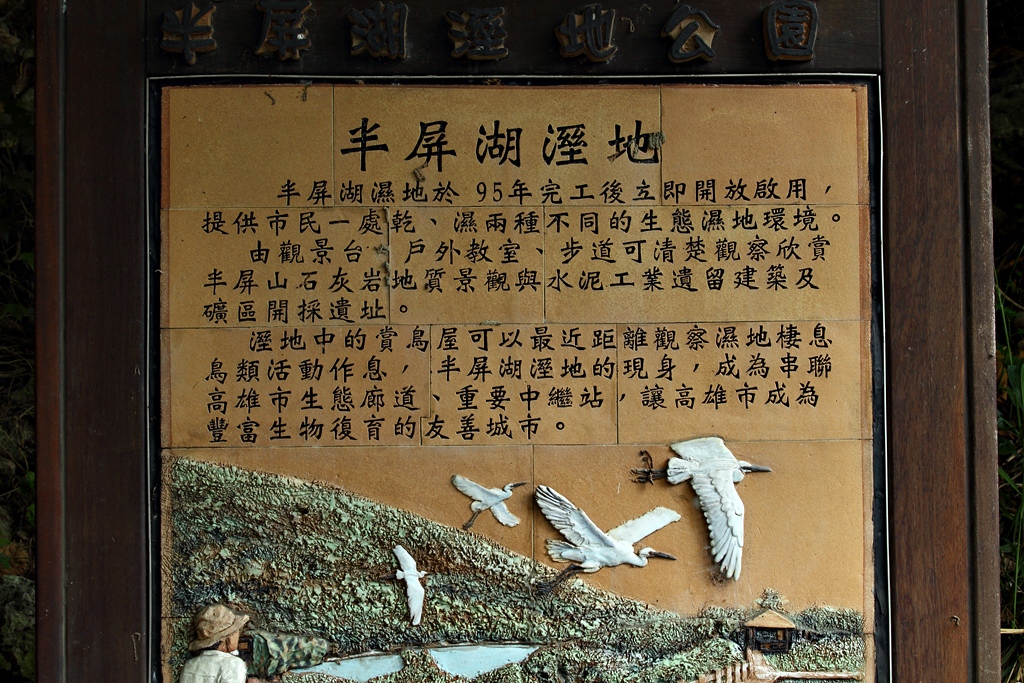 半屏湖溼地公園
半屏湖溼地
半屏湖濕地於95年完工後立即開放啟用，
提供市民一處乾、濕兩種不同的生態濕地環境。
由觀景台、戶外教室、步道可清楚觀察欣賞
半屏山石灰岩地質景觀與水泥工業遺留建築及
礦區開採遺址。
溼地中的賞鳥屋可以最近距離觀察濕地棲息
鳥類活動作息，半屏湖溼地的現身，成為串聯
高雄市生態廊道、重要中繼站，讓高雄市成為
豐富生物復育的友善城市。